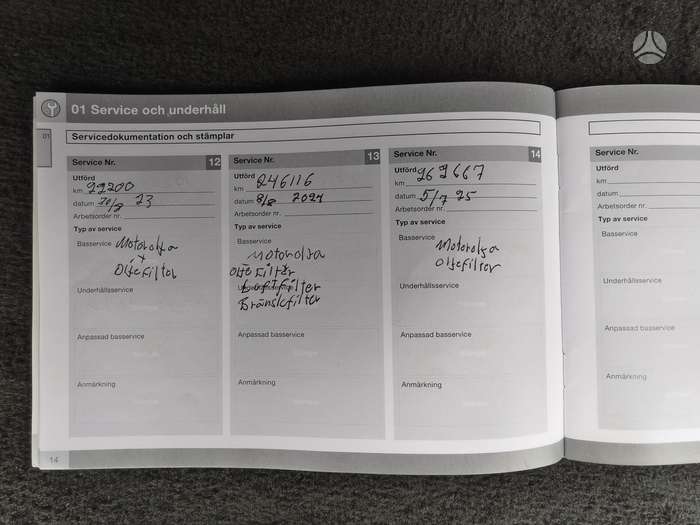 01 Service och underhåll
01
Servicedokumentation och stämplar
Service Nr. 12
Utförd
km 22200
datum 20/8 23
Arbetsorder nr.
Typ av service
Basservice Motorolja
+
Oljefilter
Underhållsservice
Anpassad basservice
Anmärkning
14
Service Nr. 13
Utförd
km 246116
datum 8/8 2024
Arbetsorder nr.
Typ av service
Basservice
Motorolja
Oljefilter
Underhållsservice
Luftfilter
Bränslefilter
Anpassad basservice
Anmärkning
Service Nr. 14
Utförd
km 262667
datum 5/7 25
Arbetsorder nr.
Typ av service
Basservice
Motorolja
Oljefilter
Underhållsservice
Anpassad basservice
Anmärkning
Service Nr.
Utförd
km
datum
Arbetsorder nr.
Typ av service
Basservice
Underhållsservice
Anpassad basservice
Anmärkning